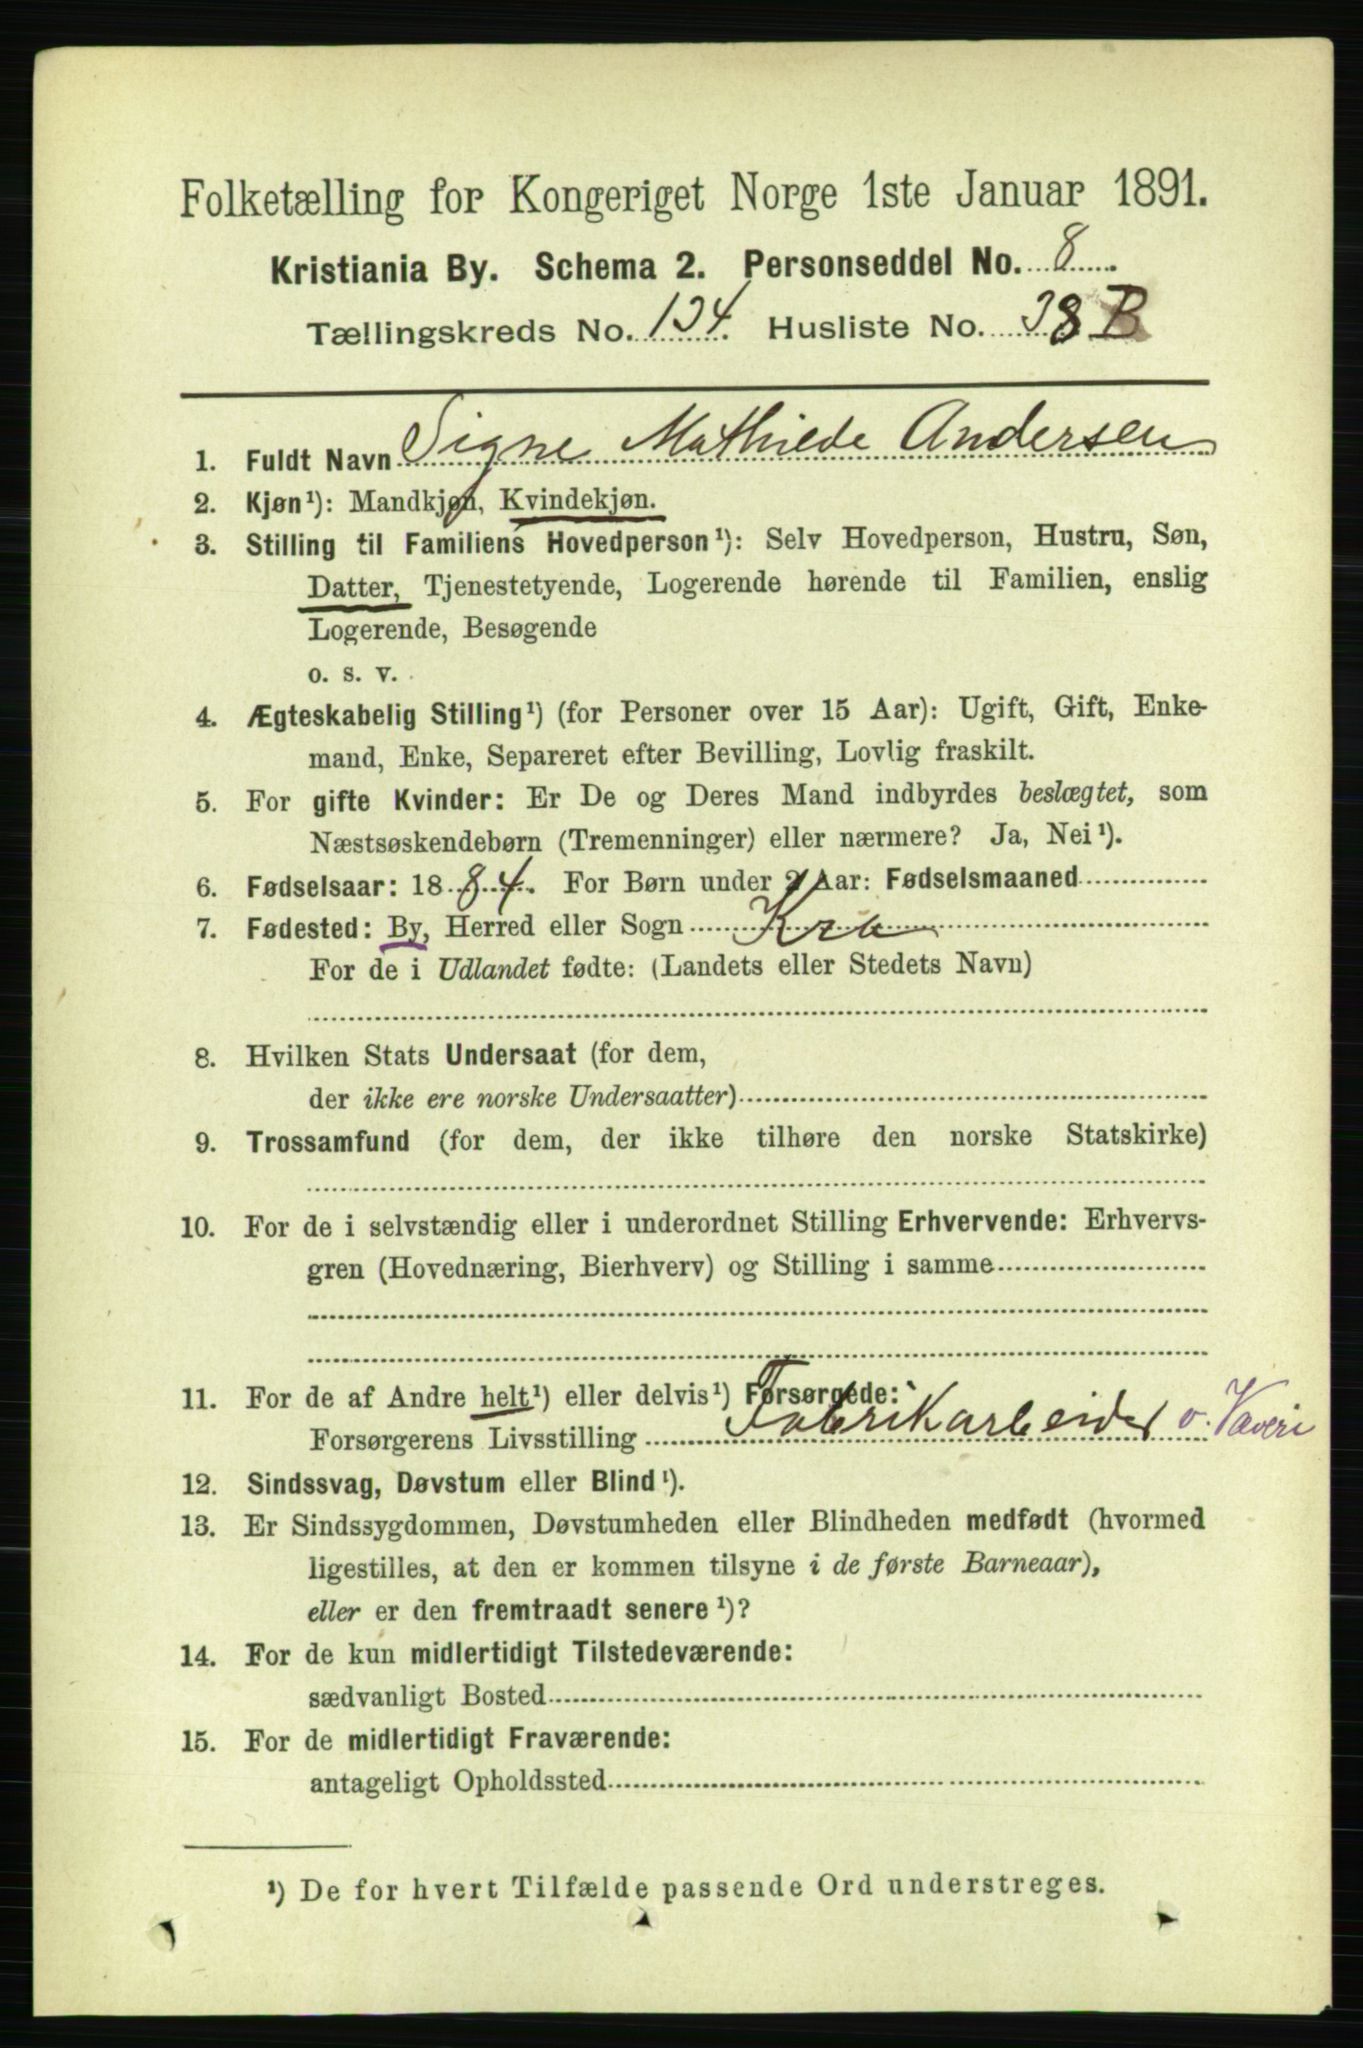 Folketælling for Kongeriget Norge 1ste Januar 1891.
Kristiania By. Schema 2. Personseddel No. 8
Tællingskreds No. 134 Husliste No. 38 B
1. Fuldt Navn Signe Mathilde Andersen
2. Kjøn¹): Mandkjøn, Kvindekjøn.
3. Stilling til Familiens Hovedperson¹): Selv Hovedperson, Hustru, Søn,
Datter, Tjenestetyende, Logerende hørende til Familien, enslig
Logerende, Besøgende
o. s. v.
4. Ægteskabelig Stilling¹) (for Personer over 15 Aar): Ugift, Gift, Enke-
mand, Enke, Separeret efter Bevilling, Lovlig fraskilt.
5. For gifte Kvinder: Er De og Deres Mand indbyrdes beslægtet, som
Næstsøskendebørn (Tremenninger) eller nærmere? Ja, Nei¹).
6. Fødselsaar: 1884. For Børn under 2 Aar: Fødselsmaaned
7. Fødested: By, Herred eller Sogn Kra
For de i Udlandet fødte: (Landets eller Stedets Navn)
8. Hvilken Stats Undersaat (for dem,
der ikke ere norske Undersaatter)
9. Trossamfund (for dem, der ikke tilhøre den norske Statskirke)
10. For de i selvstændig eller i underordnet Stilling Erhvervende: Erhvervs-
gren (Hovednæring, Bierhverv) og Stilling i samme
11. For de af Andre helt¹) eller delvis¹) Forsørgede:
Forsørgerens Livsstilling Fabrikarbeider v. Væveri
12. Sindssvag, Døvstum eller Blind¹).
13. Er Sindssygdommen, Døvstumheden eller Blindheden medfødt (hvormed
ligestilles, at den er kommen tilsyne i de første Barneaar),
eller er den fremtraadt senere¹)?
14. For de kun midlertidigt Tilstedeværende:
sædvanligt Bosted
15. For de midlertidigt Fraværende:
antageligt Opholdssted
¹) De for hvert Tilfælde passende Ord understreges.